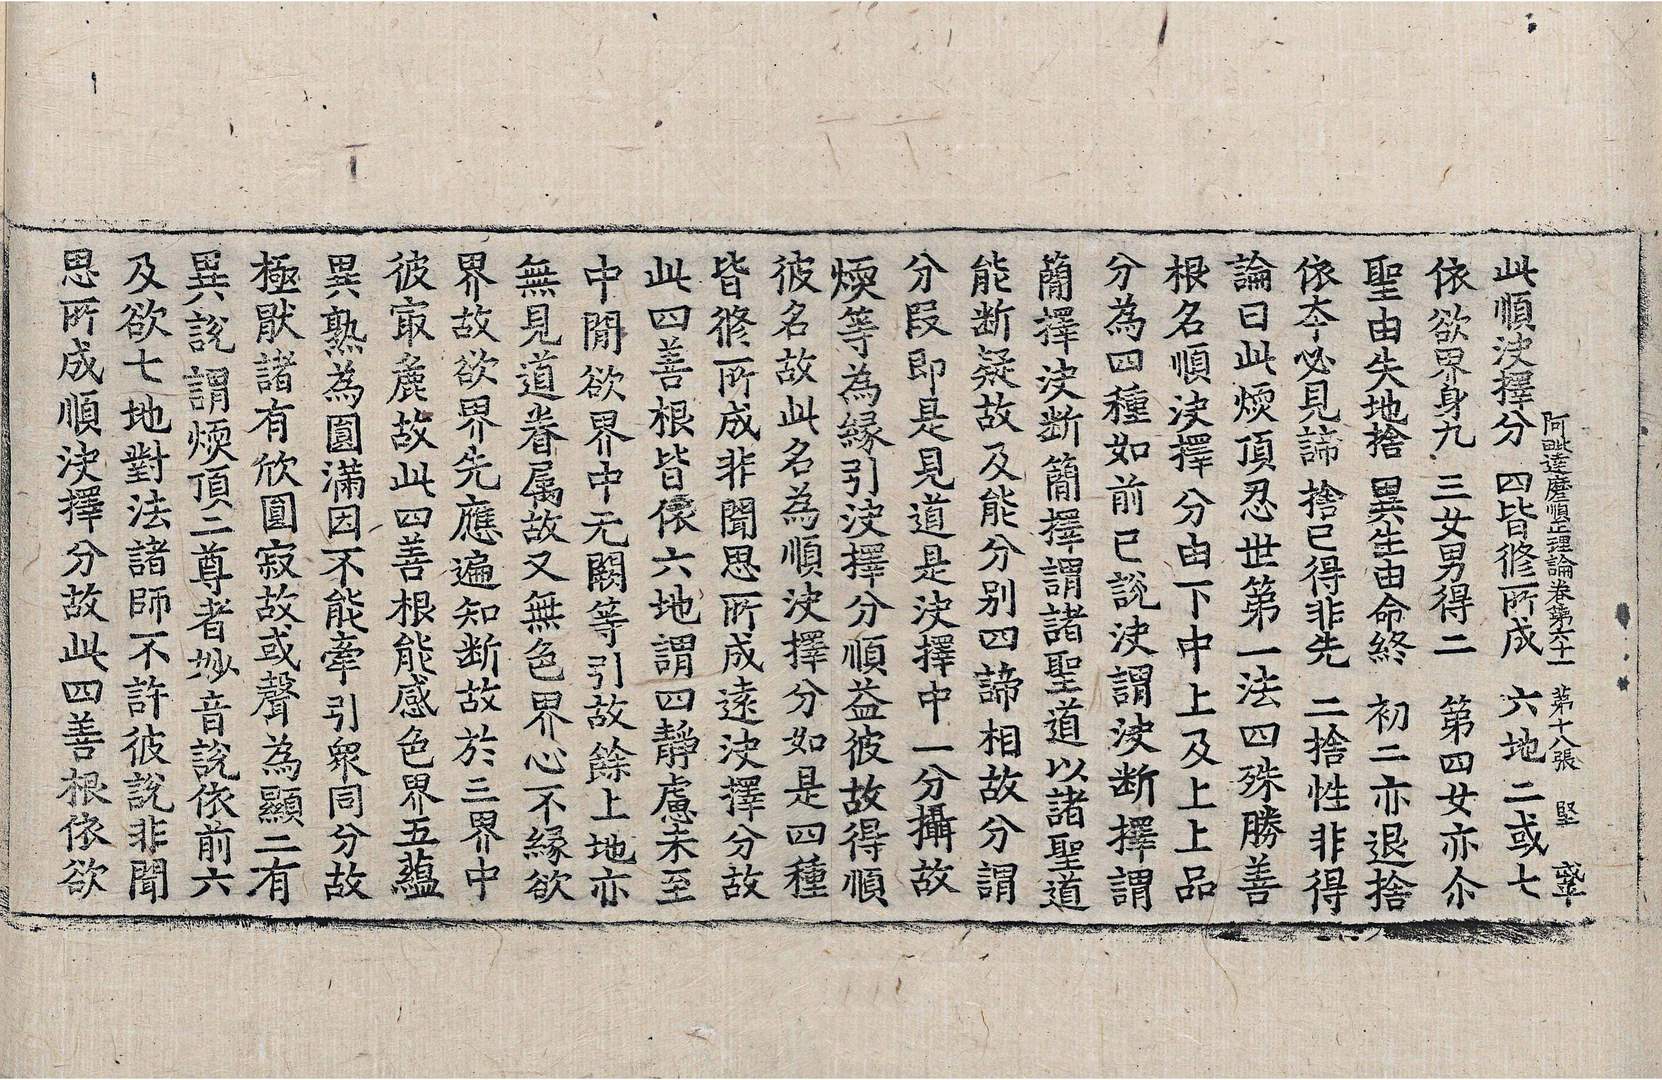 阿毗達磨順正理論卷第六十一 第十八張 堅
此順決擇分 四皆修所成 六地二或七
依欲界身九 三女男得二 第四女亦尒
聖由失地捨 異生由命終 初二亦退捨
依夲必見諦 捨已得非先 二捨性非得
論曰此煗頂忍世第一法四殊勝善
根名順決擇分由下中上及上上品
分為四種如前已說決謂決斷擇謂
簡擇決斷簡擇謂諸聖道以諸聖道
能断疑故及能分別四諦相故分謂
分段即是見道是決擇中一分攝故
煗等為緣引決擇分順益彼故得順
彼名故此名為順決擇分如是四種
皆修所成非聞思所成遠決擇分故
此四善根皆依六地謂四靜慮未至
中閒欲界中无闕等引故餘上地亦
無見道眷属故又無色界心不緣欲
界故欲界先應遍知断故於三界中
彼㝡麁故此四善根能感色界五蘊
異熟為圓滿因不能牽引衆同分故
極猒諸有欣圓寂故或聲為顯二有
異說謂煗頂二尊者妙音說依前六
及欲七地對法諸師不許彼說非聞
思所成順決擇分故此四善根依欲